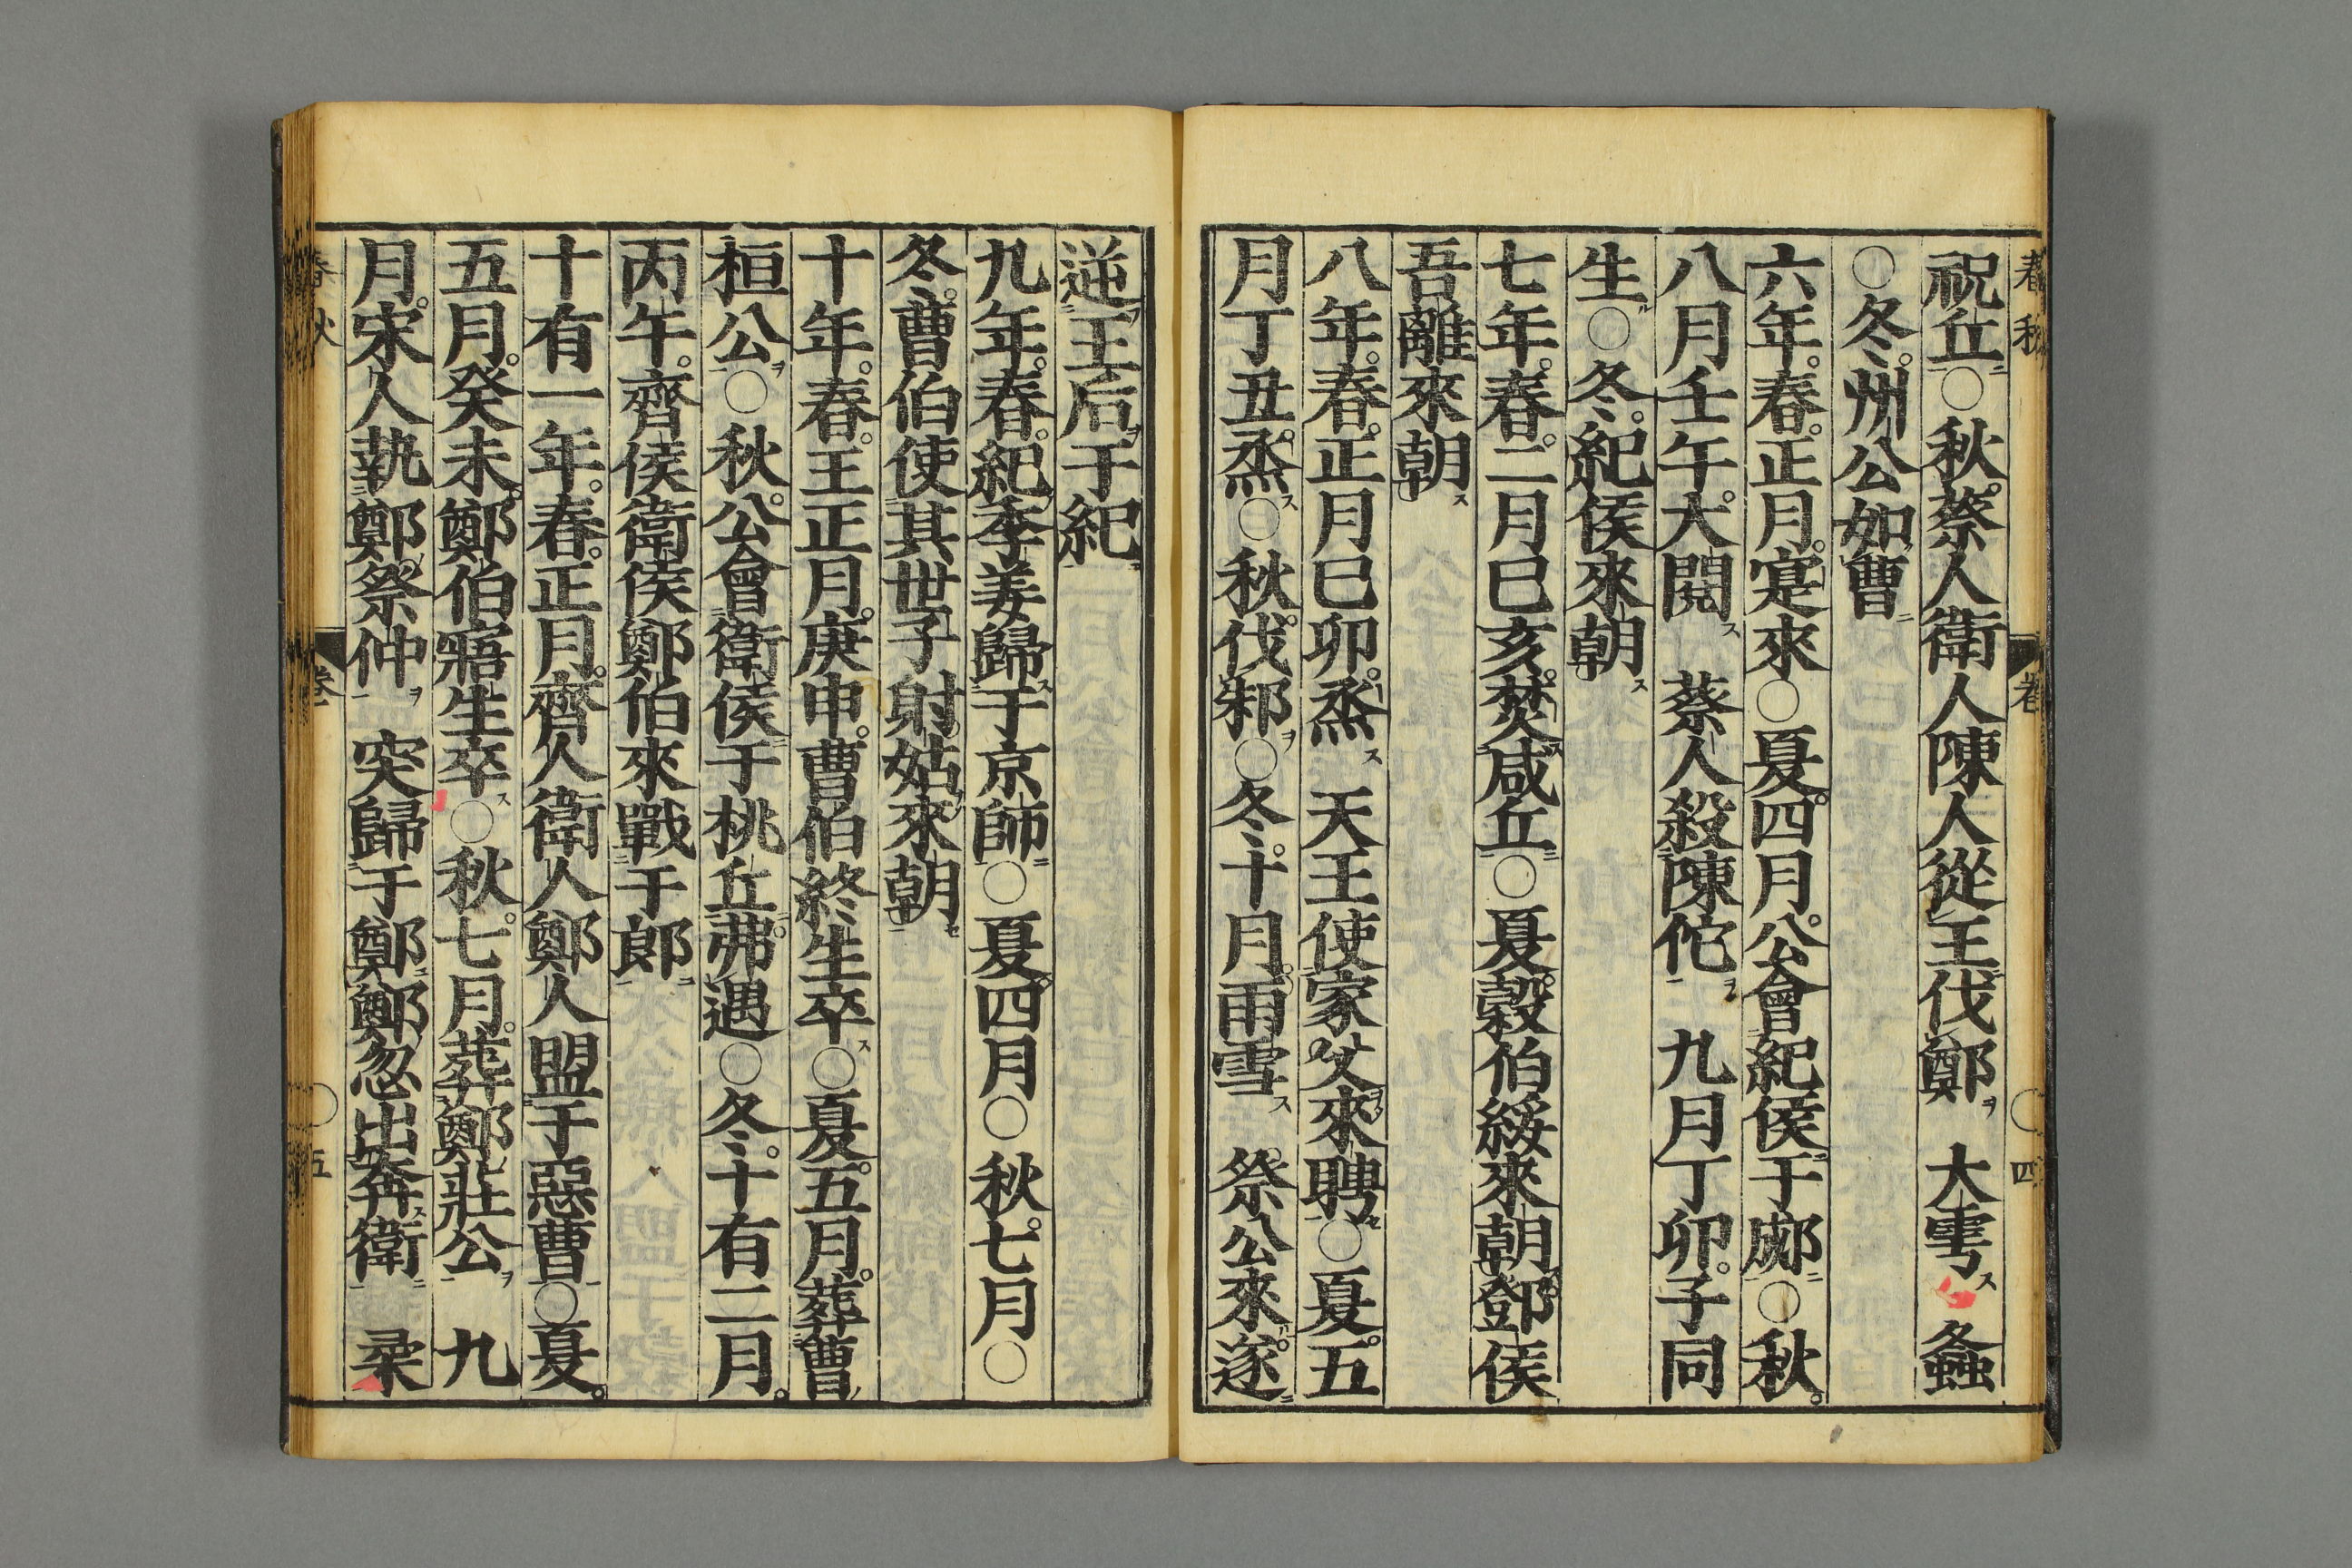 春秋 卷 〇 四
祝丘〇秋蔡人衞人陳人從王伐鄭ヲ 大雩ス 螽
〇冬州公如曹
六年春正月寔來〇夏四月公會紀侯于郕〇秋
八月壬午大閱ス 蔡人殺陳佗ヲ 九月丁卯子同
生〇冬紀侯來朝ス
七年春二月己亥焚咸丘〇夏穀伯綏來朝鄧侯
吾離來朝ス
八年春正月己卯烝ス 天王使家父來聘〇夏五
月丁丑烝ス〇秋伐邾ヲ〇冬十月雨雪ス 祭公來遂
逆王后于紀
九年春紀季姜歸于京師〇夏四月〇秋七月〇
冬曹伯使其世子射姑來朝セ
十年春王正月庚申曹伯終生卒ス〇夏五月葬曹
桓公ヲ〇秋公會衞侯于桃丘弗遇〇冬十有二月
丙午齊侯衞侯鄭伯來戰于郎
十有一年春正月齊人衞人鄭人盟于惡曹〇夏
五月癸未鄭伯寤生卒ス〇秋七月葬鄭莊公ヲ 九
月宋人執鄭祭仲ヲ 突歸于鄭鄭忽出奔衞 柔
春秋 卷一 〇 五